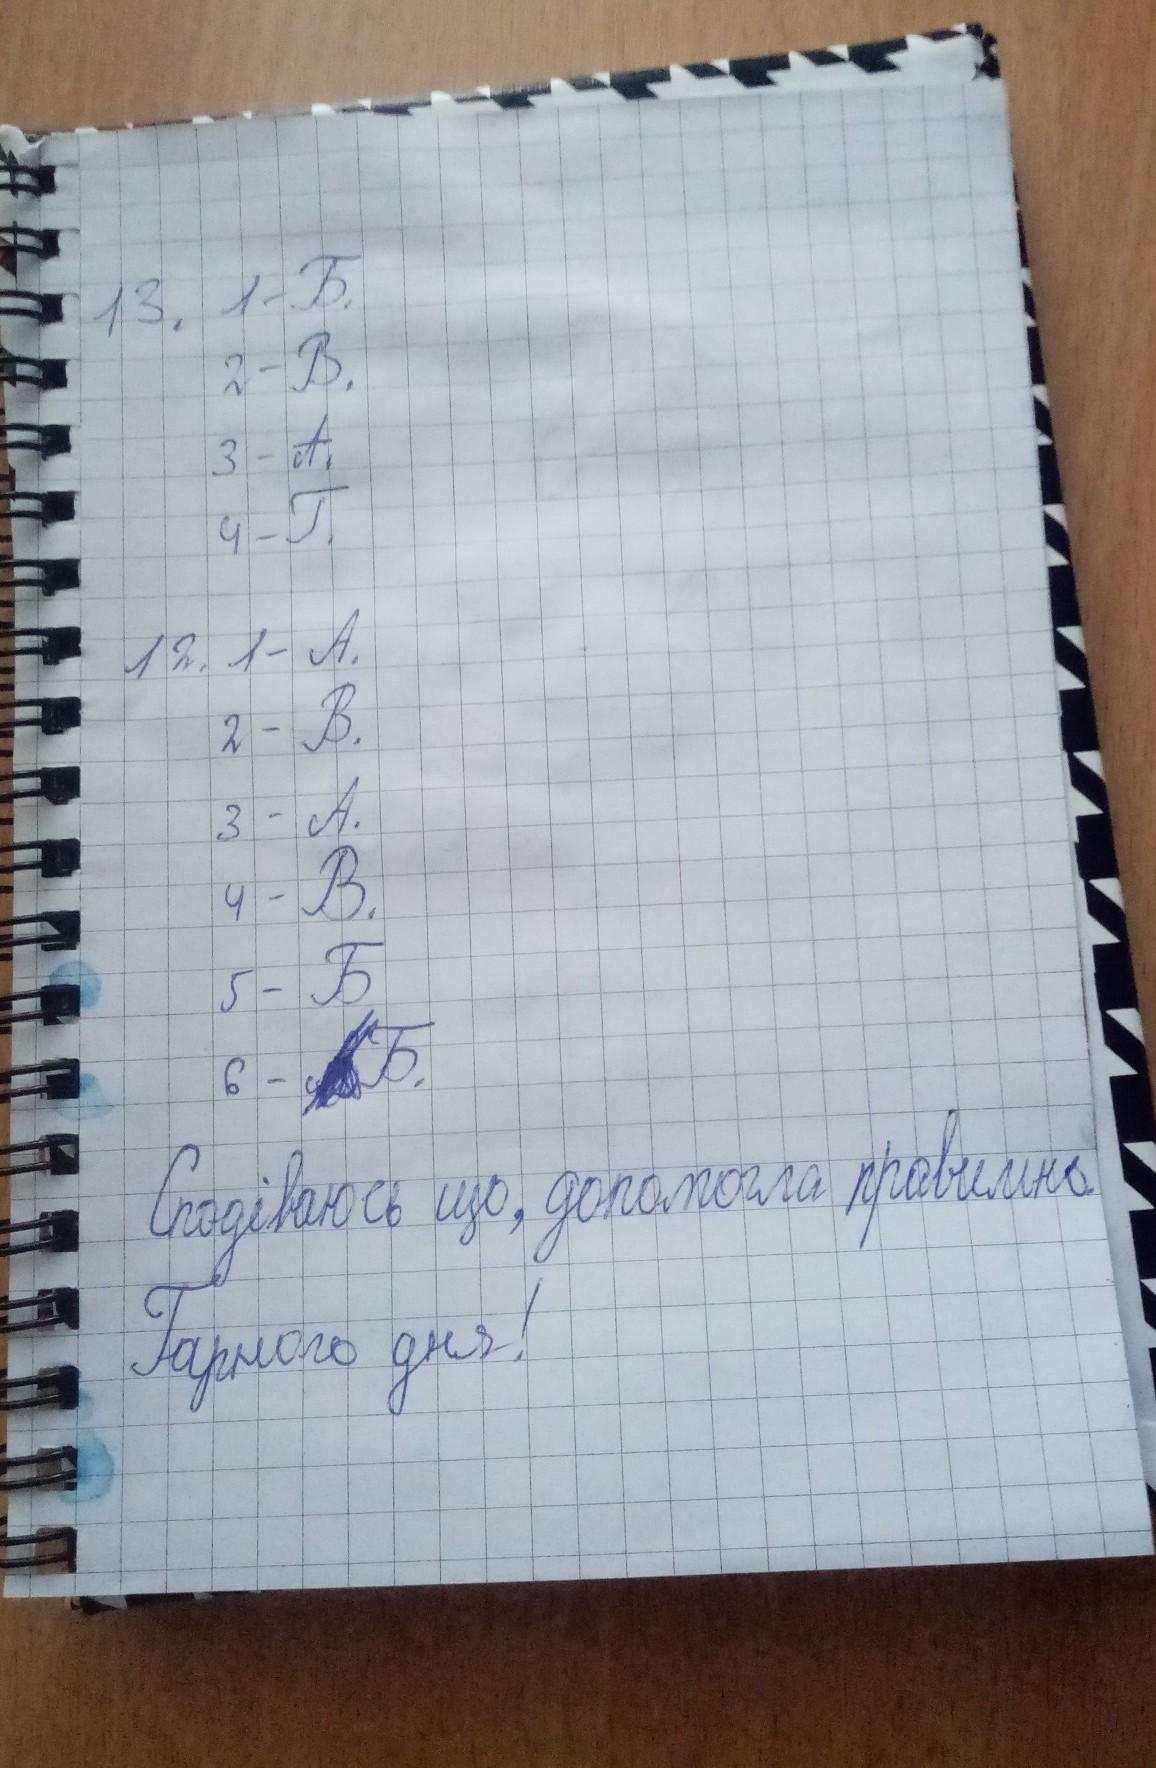 13. 1-Б.
2-В.
3-А.
4-Г.
12. 1-А.
2-В.
3-А.
4-В.
5-Б
6-Б.
Сподіваюсь що, допомогла правильно.
Гарного дня!